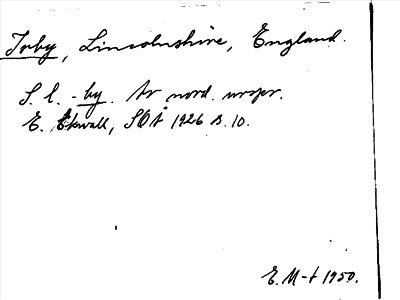 Irby, Lincolnshire, England.
S. l. -by. Av nord. urspr.
E. Ekwall, SOÅ 1926 s. 10.
E. M-t 1950.